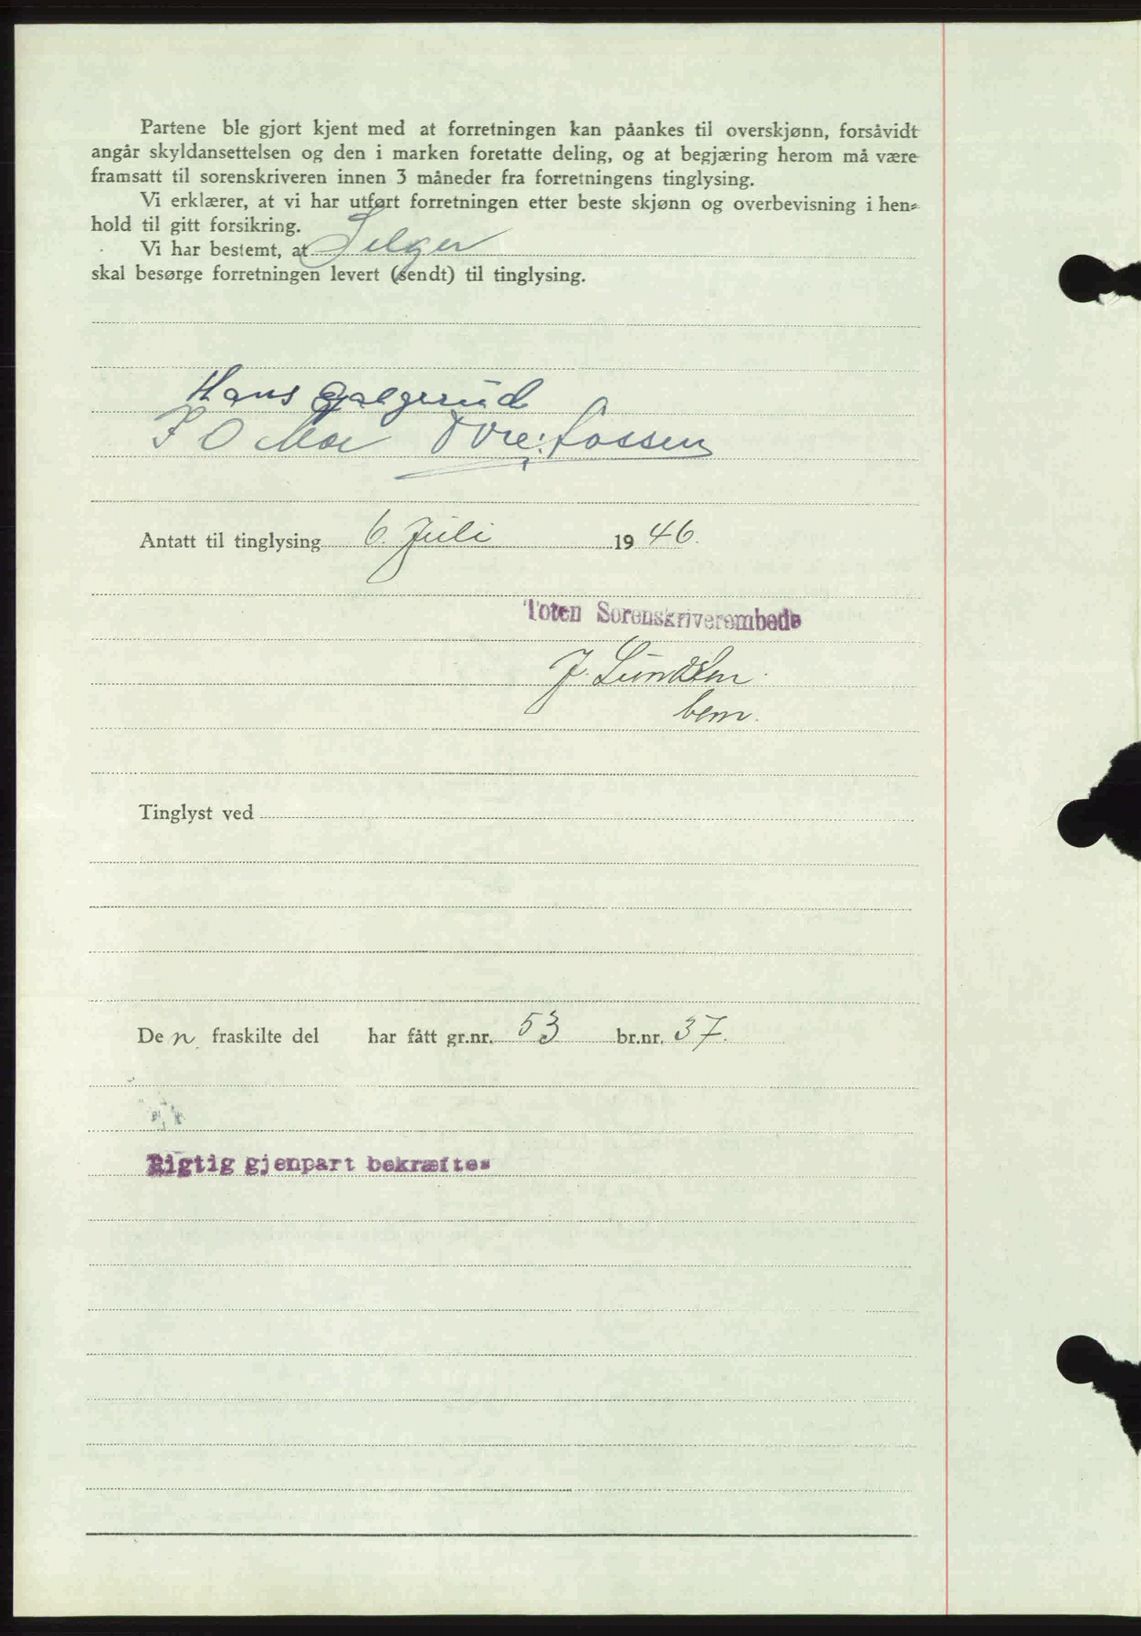 Partene ble gjort kjent med at forretningen kan påankes til overskjønn, forsåvidt
angår skyldansettelsen og den i marken foretatte deling, og at begjæring herom må være
framsatt til sorenskriveren innen 3 måneder fra forretningens tinglysing.
Vi erklærer, at vi har utført forretningen etter beste skjønn og overbevisning i hen-
hold til gitt forsikring.
Vi har bestemt, at Selger
skal besørge forretningen levert (sendt) til tinglysing.
Hans Galgerud
P O Moe Tore Fossen
Antatt til tinglysing 6. Juli 1946.
Toten Sorenskriverembede
J.
bem.
Tinglyst ved
Den fraskilte del har fått gr.nr. 53 br.nr. 37.
Rigtig gjenpart bekræftes